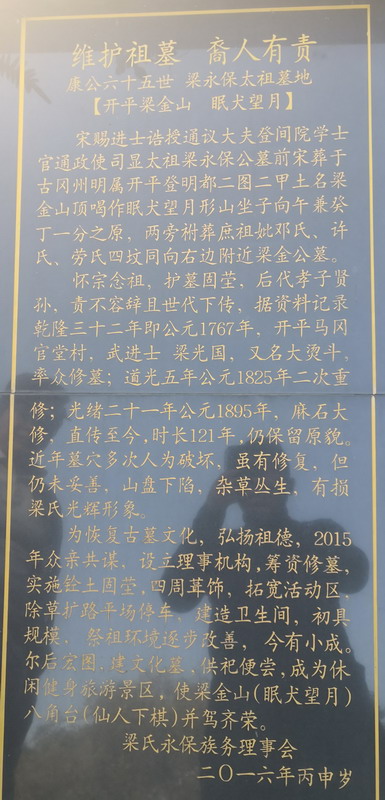 维护祖墓 裔人有责
康公六十五世 梁永保太祖墓地
【开平梁金山 眠犬望月】
宋赐进士诰授通议大夫登间院学士
官通政使司显太祖梁永保公墓前宋葬于
古冈州明属开平登明都二图二甲土名梁
金山顶唱作眠犬望月形山坐子向午兼癸
丁一分之原，两旁祔葬庶祖妣邓氏、许
氏、劳氏四坟同向右边附近梁金公墓。
怀宗念祖，护墓固茔，后代孝子贤
孙，责不容辞且世代下传，据资料记录
乾隆三十二年即公元1767年，开平马冈
官堂村，武进士 梁光国，又名大烫斗，
率众修墓；道光五年公元1825年二次重
修；光绪二十一年公元1895年，麻石大
修，直传至今，时长121年，仍保留原貌。
近年墓穴多次人为破坏，虽有修复，但
仍未妥善，山盘下陷，杂草丛生，有损
梁氏光辉形象。
为恢复古墓文化，弘扬祖德，2015
年众亲共谋，设立理事机构，筹资修墓，
实施铨土固茔，四周葺饰，拓宽活动区，
除草扩路平场停车，建造卫生间，初具
规模，祭祖环境逐步改善，今有小成。
尔后宏图，建文化墓，供祀便尝，成为休
闲健身旅游景区，使梁金山（眠犬望月）
八角台（仙人下棋）并驾齐荣。
梁氏永保族务理事会
二〇一六年丙申岁